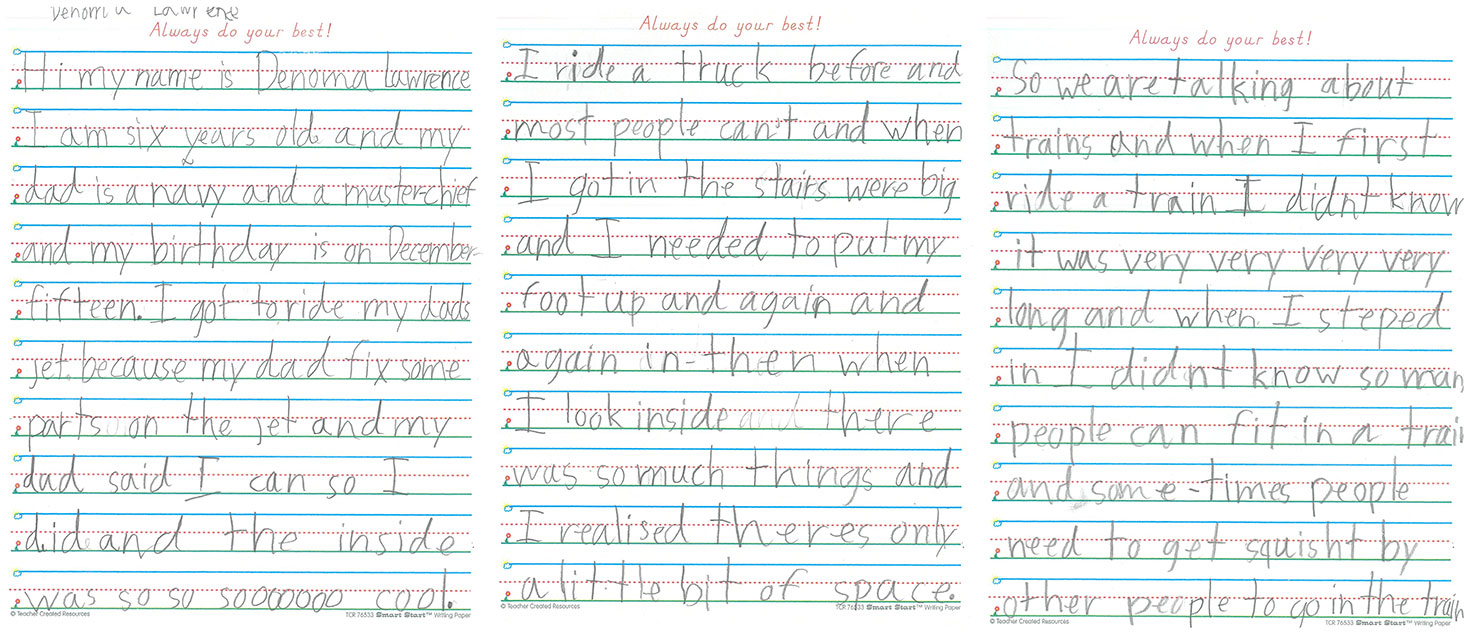 Denoma Lawrene
Always do your best!
Hi my name is Denoma Lawrence
I am six years old and my
dad is a navy and a master-chief
and my birthday is on December-
fifteen. I got to ride my dads
jet. because my dad fix some
parts on the jet and my
dad said I can so I
did and the inside
was so so sooooooo cool.
© Teacher Created Resources
TCR 76533 Smart Start™ Writing Paper
Always do your best!
I ride a truck before and
most people can't and when
I got in the stairs were big
and I needed to put my
foot up and again and
again in-then when
I look inside and there
was so much things and
I realised theres only
a little bit of space.
© Teacher Created Resources
TCR 76533 Smart Start™ Writing Paper
Always do your best!
So we are talking about
trains and when I first
ride a train I didnt know
it was very very very very
long and when I steped
in I didnt know so man
people can fit in a train
and some-times people
need to get squisht by
other people to go in the train
© Teacher Created Resources
TCR 76533 Smart Start™ Writing Paper